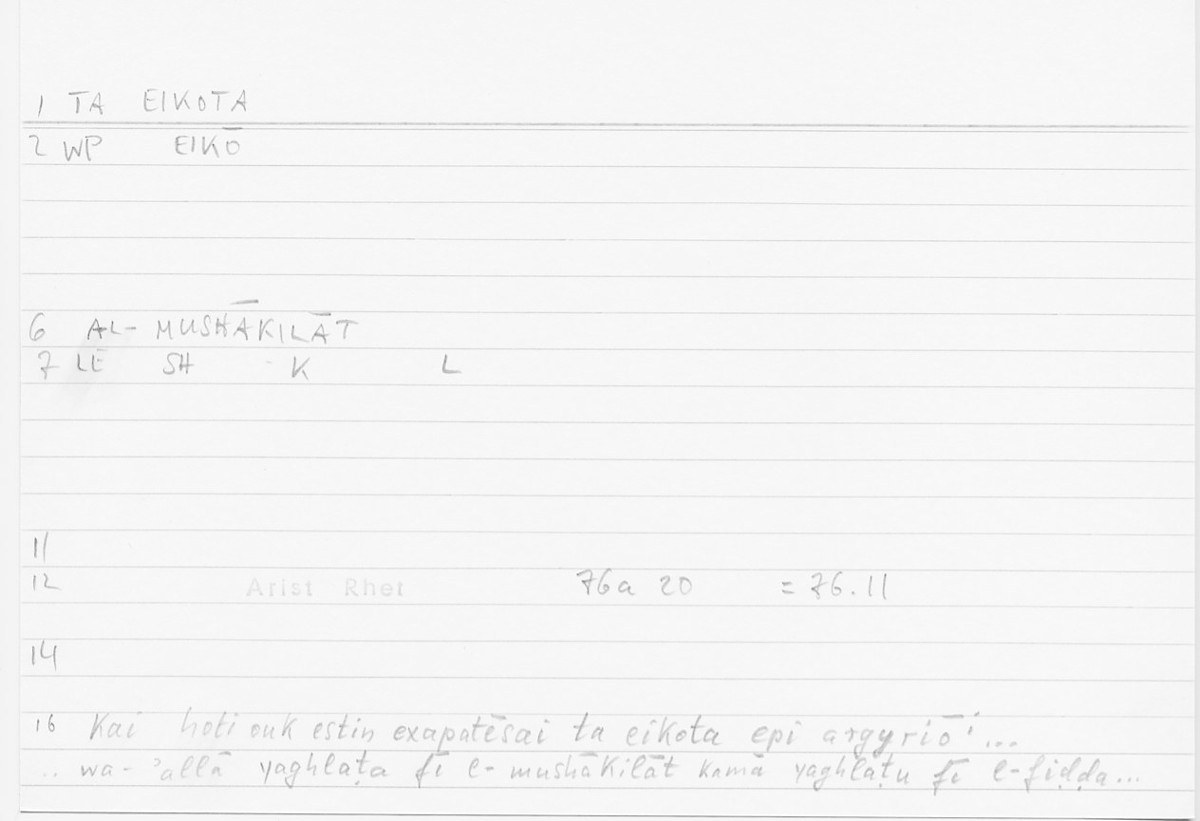 1 TA EIKOTA
2 WP EIKŌ
6 AL- MUSHĀKILĀT
7 LE SH K L
11
12 Arist Rhet 76a 20 = 76.11
14
16 Kai hoti ouk estin exapatēsai ta eikota epi argyriō i...
.. wa- ʾallā yaghlaṭa fī l- mushākilāt kamā yaghlaṭu fī l-fiḍḍa...